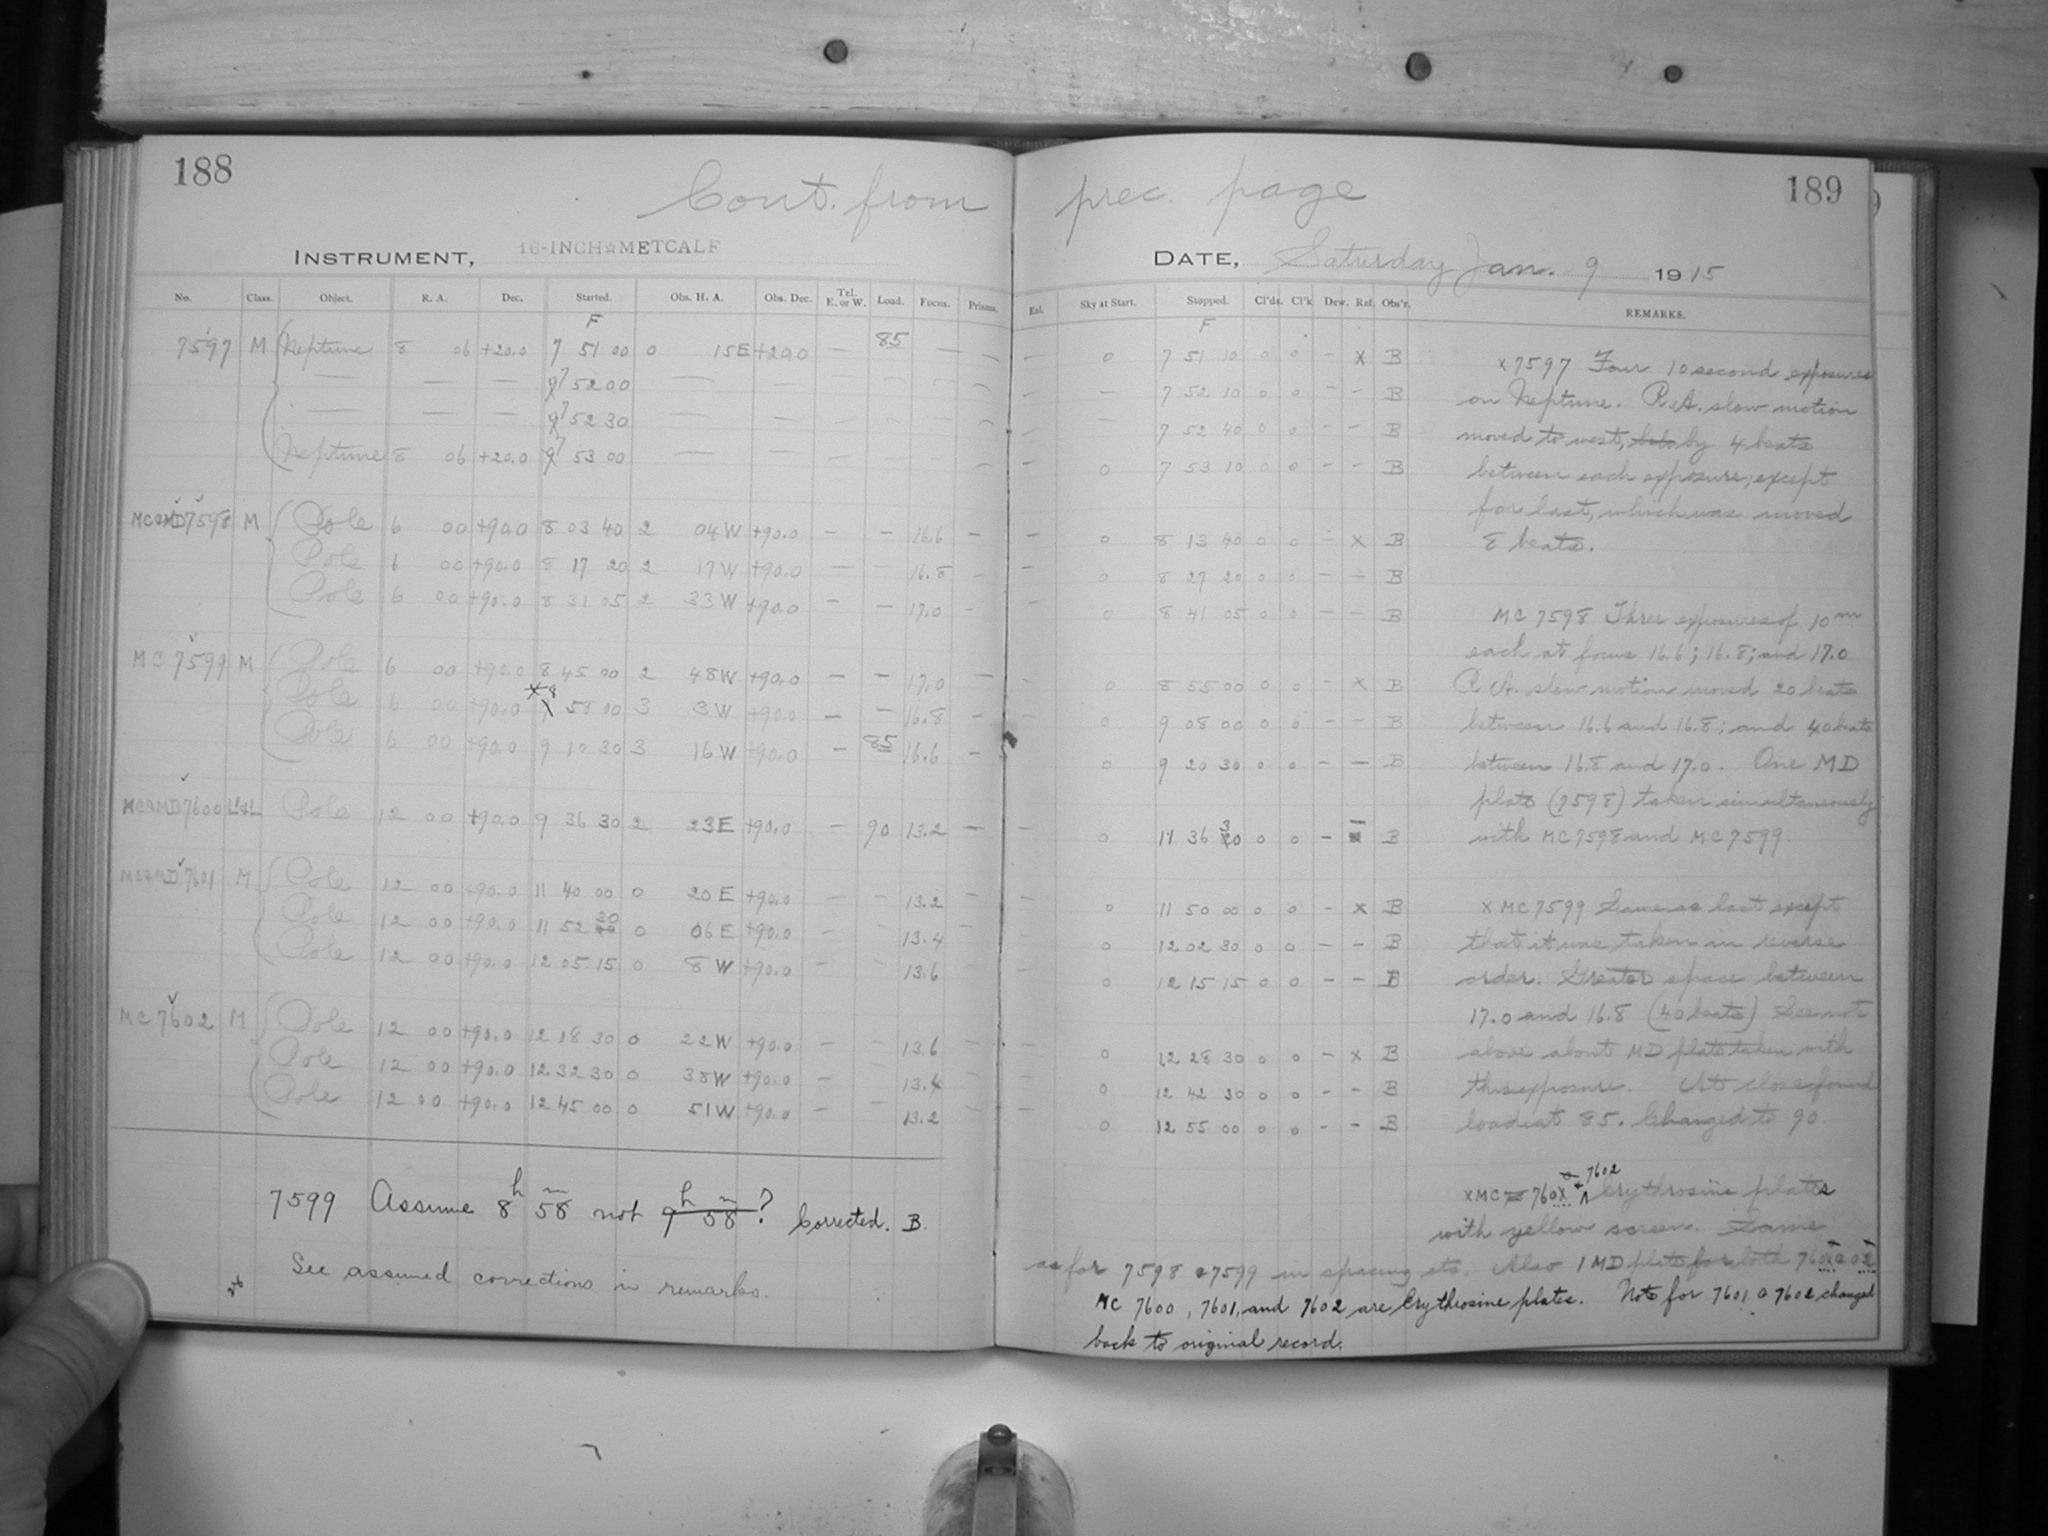 188
Cont. from prec. page
189
INSTRUMENT, 16-INCH METCALF
DATE, Saturday Jan. 9 1915
No. Class. Object. R. A. Dec. Started. Obs. H. A. Obs. Dec. Tel. E. or W. Load. Focus. Prisms. Exl. Sky at Start. Stopped. Cl'ds. Cl'k Dew. Ref. Obs'r. REMARKS.
F F
7597 M Neptune 8 06 +20.0 7 51 00 0 15E +20.0 — 85 — — — 0 7 51 10 0 0 – x B
— — — 7 52 00 — — — — — — — — 7 52 10 0 0 – – B
— — — 7 52 30 — — — — — — — — 7 52 40 0 0 – – B
Neptune 8 06 +20.0 7 53 00 — — — — — — — 0 7 53 10 0 0 – – B
MC&MD 7598 M Pole 6 00 +90.0 8 03 40 2 04W +90.0 – – 16.6 – – 0 8 13 40 0 0 – x B
Pole 6 00 +90.0 8 17 20 2 17W +90.0 – – 16.8 – – 0 8 27 20 0 0 – – B
Pole 6 00 +90.0 8 31 05 2 33W +90.0 – – 17.0 – – 0 8 41 05 0 0 – – B
MC 7599 M Pole 6 00 +90.0 8 45 00 2 48W +90.0 – – 17.0 – – 0 8 55 00 0 0 – x B
Pole 6 00 +90.0 x 8 58 00 3 3W +90.0 – – 16.8 – – 0 9 08 00 0 0 – – B
Pole 6 00 +90.0 9 10 30 3 16W +90.0 – 85 16.6 – 0 9 20 30 0 0 – – B
MC&MD 7600 L&L Pole 12 00 +90.0 9 36 30 2 23E +90.0 – 90 13.2 – – 0 11 36 30 0 0 – – B
MC&MD 7601 M Pole 12 00 +90.0 11 40 00 0 20E +90.0 – – 13.2 – – 0 11 50 00 0 0 – x B
Pole 12 00 +90.0 11 52 30 0 06E +90.0 – – 13.4 – – 0 12 02 30 0 0 – – B
Pole 12 00 +90.0 12 05 15 0 8W +90.0 – – 13.6 – – 0 12 15 15 0 0 – – B
MC 7602 M Pole 12 00 +90.0 12 18 30 0 22W +90.0 – – 13.6 – – 0 12 28 30 0 0 – x B
Pole 12 00 +90.0 12 32 30 0 38W +90.0 – – 13.4 – – 0 12 42 30 0 0 – – B
Pole 12 00 +90.0 12 45 00 0 51W +90.0 – – 13.2 – – 0 12 55 00 0 0 – – B
7599 Assume 8h 58m not 9h 58m? Corrected. B.
See assumed corrections in remarks.
x 7597 Four 10 second exposures
on Neptune. R.A. slow motion
moved to west, by 4 beats
between each exposure, except
for last, which was moved
8 beats.
MC 7598 Three exposures of 10m
each at focus 16.6; 16.8; and 17.0
R.A. slow motion moved 20 beats
between 16.6 and 16.8; and 40 beats
between 16.8 and 17.0. One MD
plate (7598) taken simultaneously
with MC 7598 and MC 7599.
x MC 7599 Same as last except
that it was taken in reverse
order. Greater space between
17.0 and 16.8 (40 beats) See note
above about MD plate taken with
this exposure. At close found
load at 85. Changed to 90
x MC 760 7602 Erythrosine plates
with yellow screen. Same
as for 7598 & 7599 in spacing etc. Also 1 MD plate for both 760
MC 7600, 7601, and 7602 are Erythrosine plates. Note for 7601 & 7602 changed
back to original record.